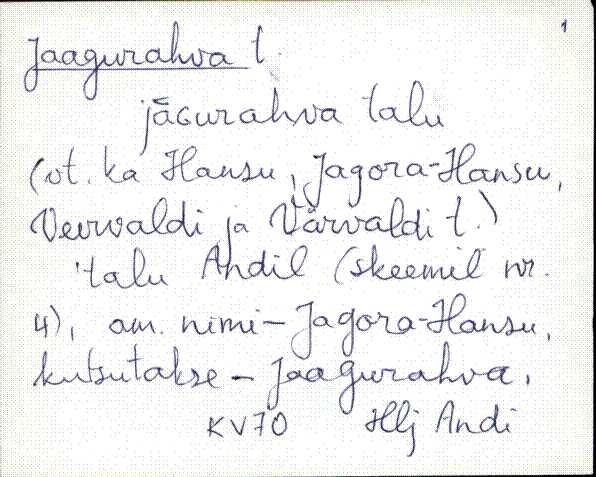 1
Jaagurahva t.
jāɢurahva talu
(vt. ka Hansu, Jagora-Hansu,
Vervaldi ja Värvaldi t.)
'talu Andil (skeemil nr.
4), am. nimi - Jagora-Hansu,
kutsutakse - Jaagurahva.
KV70 Hlj Andi